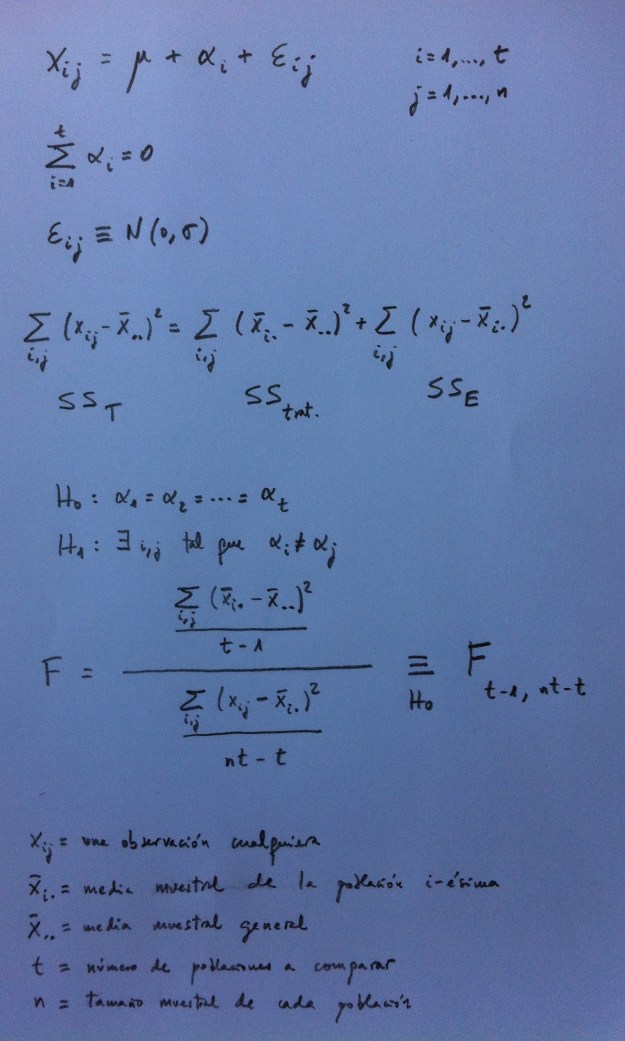 X_ij = μ + α_i + ε_ij    i=1,...,t
j=1,...,n
∑_{i=1}^{t} α_i = 0
ε_ij ≡ N(0,σ)
∑_{i,j} (x_ij - x̄..)² = ∑_{i,j} (x̄i. - x̄..)² + ∑_{i,j} (x_ij - x̄i.)²
SS_T    SS_trat.    SS_E
H₀: α₁ = α₂ = ... = α_t
H₁: ∃ i,j tal que α_i ≠ α_j
∑_{i,j} (x̄i. - x̄..)²
t-1
F = ―――― ≡_{H₀} F_{t-1, nt-t}
∑_{i,j} (x_ij - x̄i.)²
nt - t
X_ij = una observación cualquiera
x̄i. = media muestral de la población i-ésima
x̄.. = media muestral general
t = número de poblaciones a comparar
n = tamaño muestral de cada población